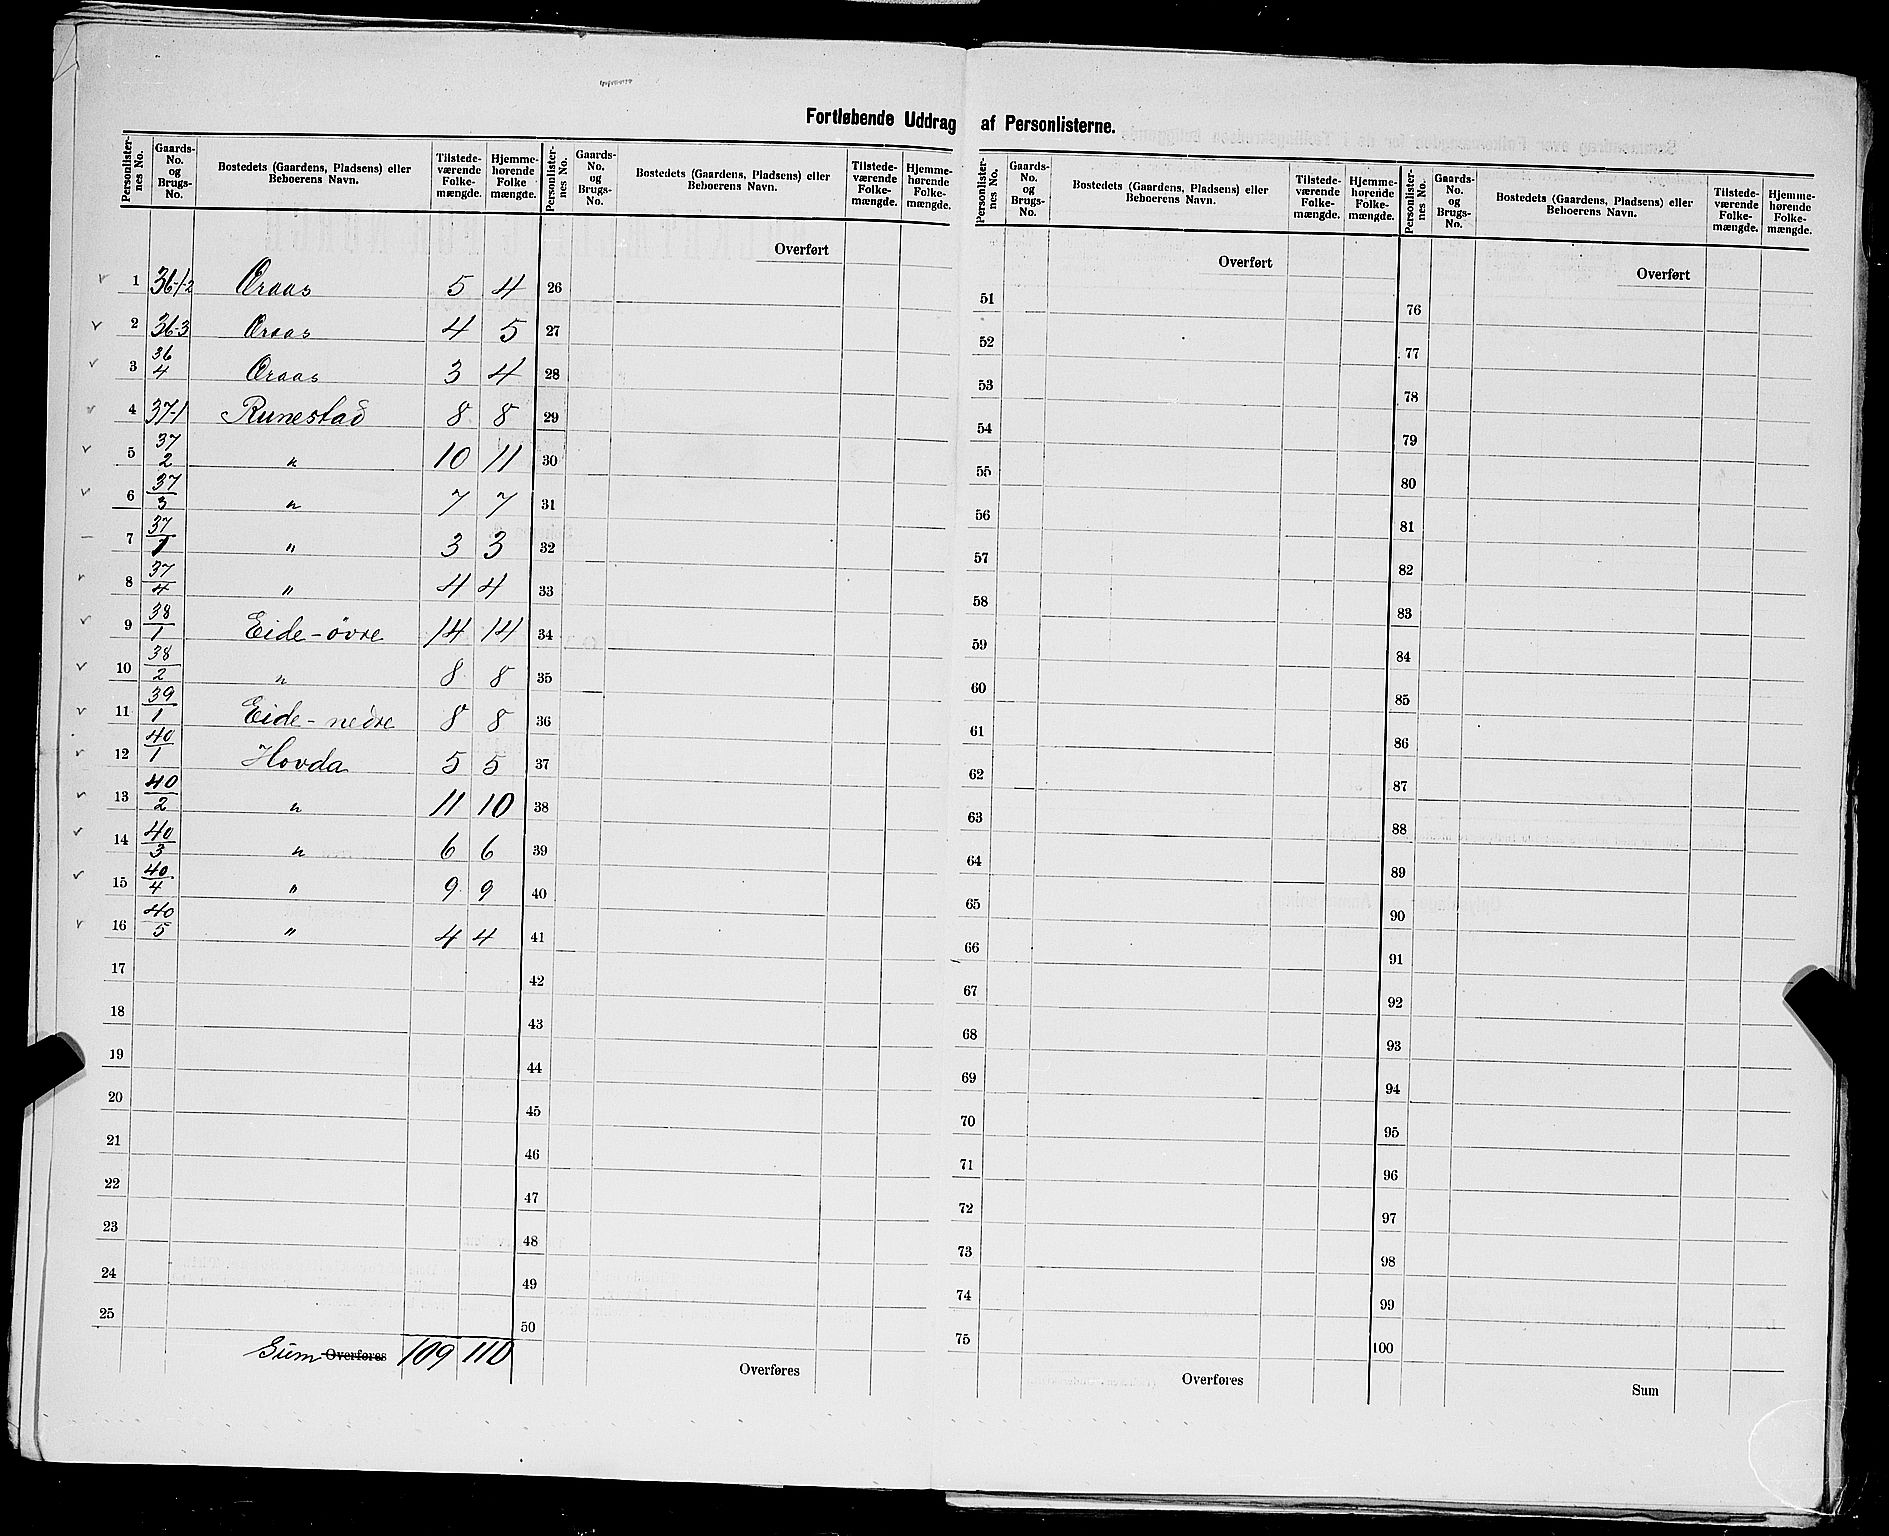 Fortløbende Uddrag af Personlisterne.
Personlister-nes No. | Gaards-No. og Brugs-No. | Bostedets (Gaardens, Pladsens) eller Beboerens Navn. | Tilstede-værende Folke-mængde. | Hjemme-hørende Folke mængde.
1 36-1-2 Øraas 5 4
2 36-3 Øraas 4 5
3 36/4 Øraas 3 4
4 37-1 Runestad 8 8
5 37/2 " 10 11
6 37/3 " 7 7
7 37/1 " 3 3
8 37/4 " 4 4
9 38/1 Eide-övre 14 14
10 38/2 " 8 8
11 39/1 Eide-nedre 8 8
12 40/1 Hovda 5 5
13 40/2 " 11 10
14 40/3 " 6 6
15 40/4 " 9 9
16 40/5 " 4 4
17
18
19
20
21
22
23
24
25
Sum Overføres 109 110
Personlister-nes No. | Gaards-No. og Brugs-No. | Bostedets (Gaardens, Pladsens) eller Beboerens Navn. | Tilstede-værende Folke-mængde. | Hjemme-hørende Folke-mængde.
Overført
26
27
28
29
30
31
32
33
34
35
36
37
38
39
40
41
42
43
44
45
46
47
48
49
50
Overføres
Personlister-nes No. | Gaards-No. og Brugs-No. | Bostedets (Gaardens, Pladsens) eller Beboerens Navn. | Tilstede-værende Folke-mængde. | Hjemme-hørende Folke-mængde.
Overført
51
52
53
54
55
56
57
58
59
60
61
62
63
64
65
66
67
68
69
70
71
72
73
74
75
Overføres
Personlister-nes No. | Gaards-No. og Brugs-No. | Bostedets (Gaardens, Pladsens) eller Beboerens Navn. | Tilstede-værende Folke-mængde. | Hjemme-hørende Folke-mængde.
Overført
76
77
78
79
80
81
82
83
84
85
86
87
88
89
90
91
92
93
94
95
96
97
98
99
100
Sum